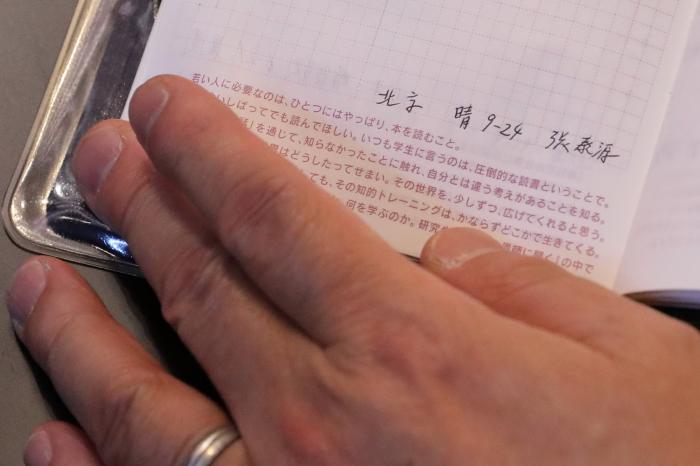 北京 晴 9-24 张泰源
若い人に必要なのは、ひとつにはやっぱり、本を読むこと。
いしばってでも読んでほしい。いつも学生に言うのは、圧倒的な読書ということで。
」を通じて、知らなかったことに触れ、自分とは違う考えがあることを知る。
界はどうしたってせまい。その世界を、少しずつ、広げてくれると思う。
ても、その知的トレーニングは、かならずどこかで生きてくる。
何を学ぶのか。研究 の中で